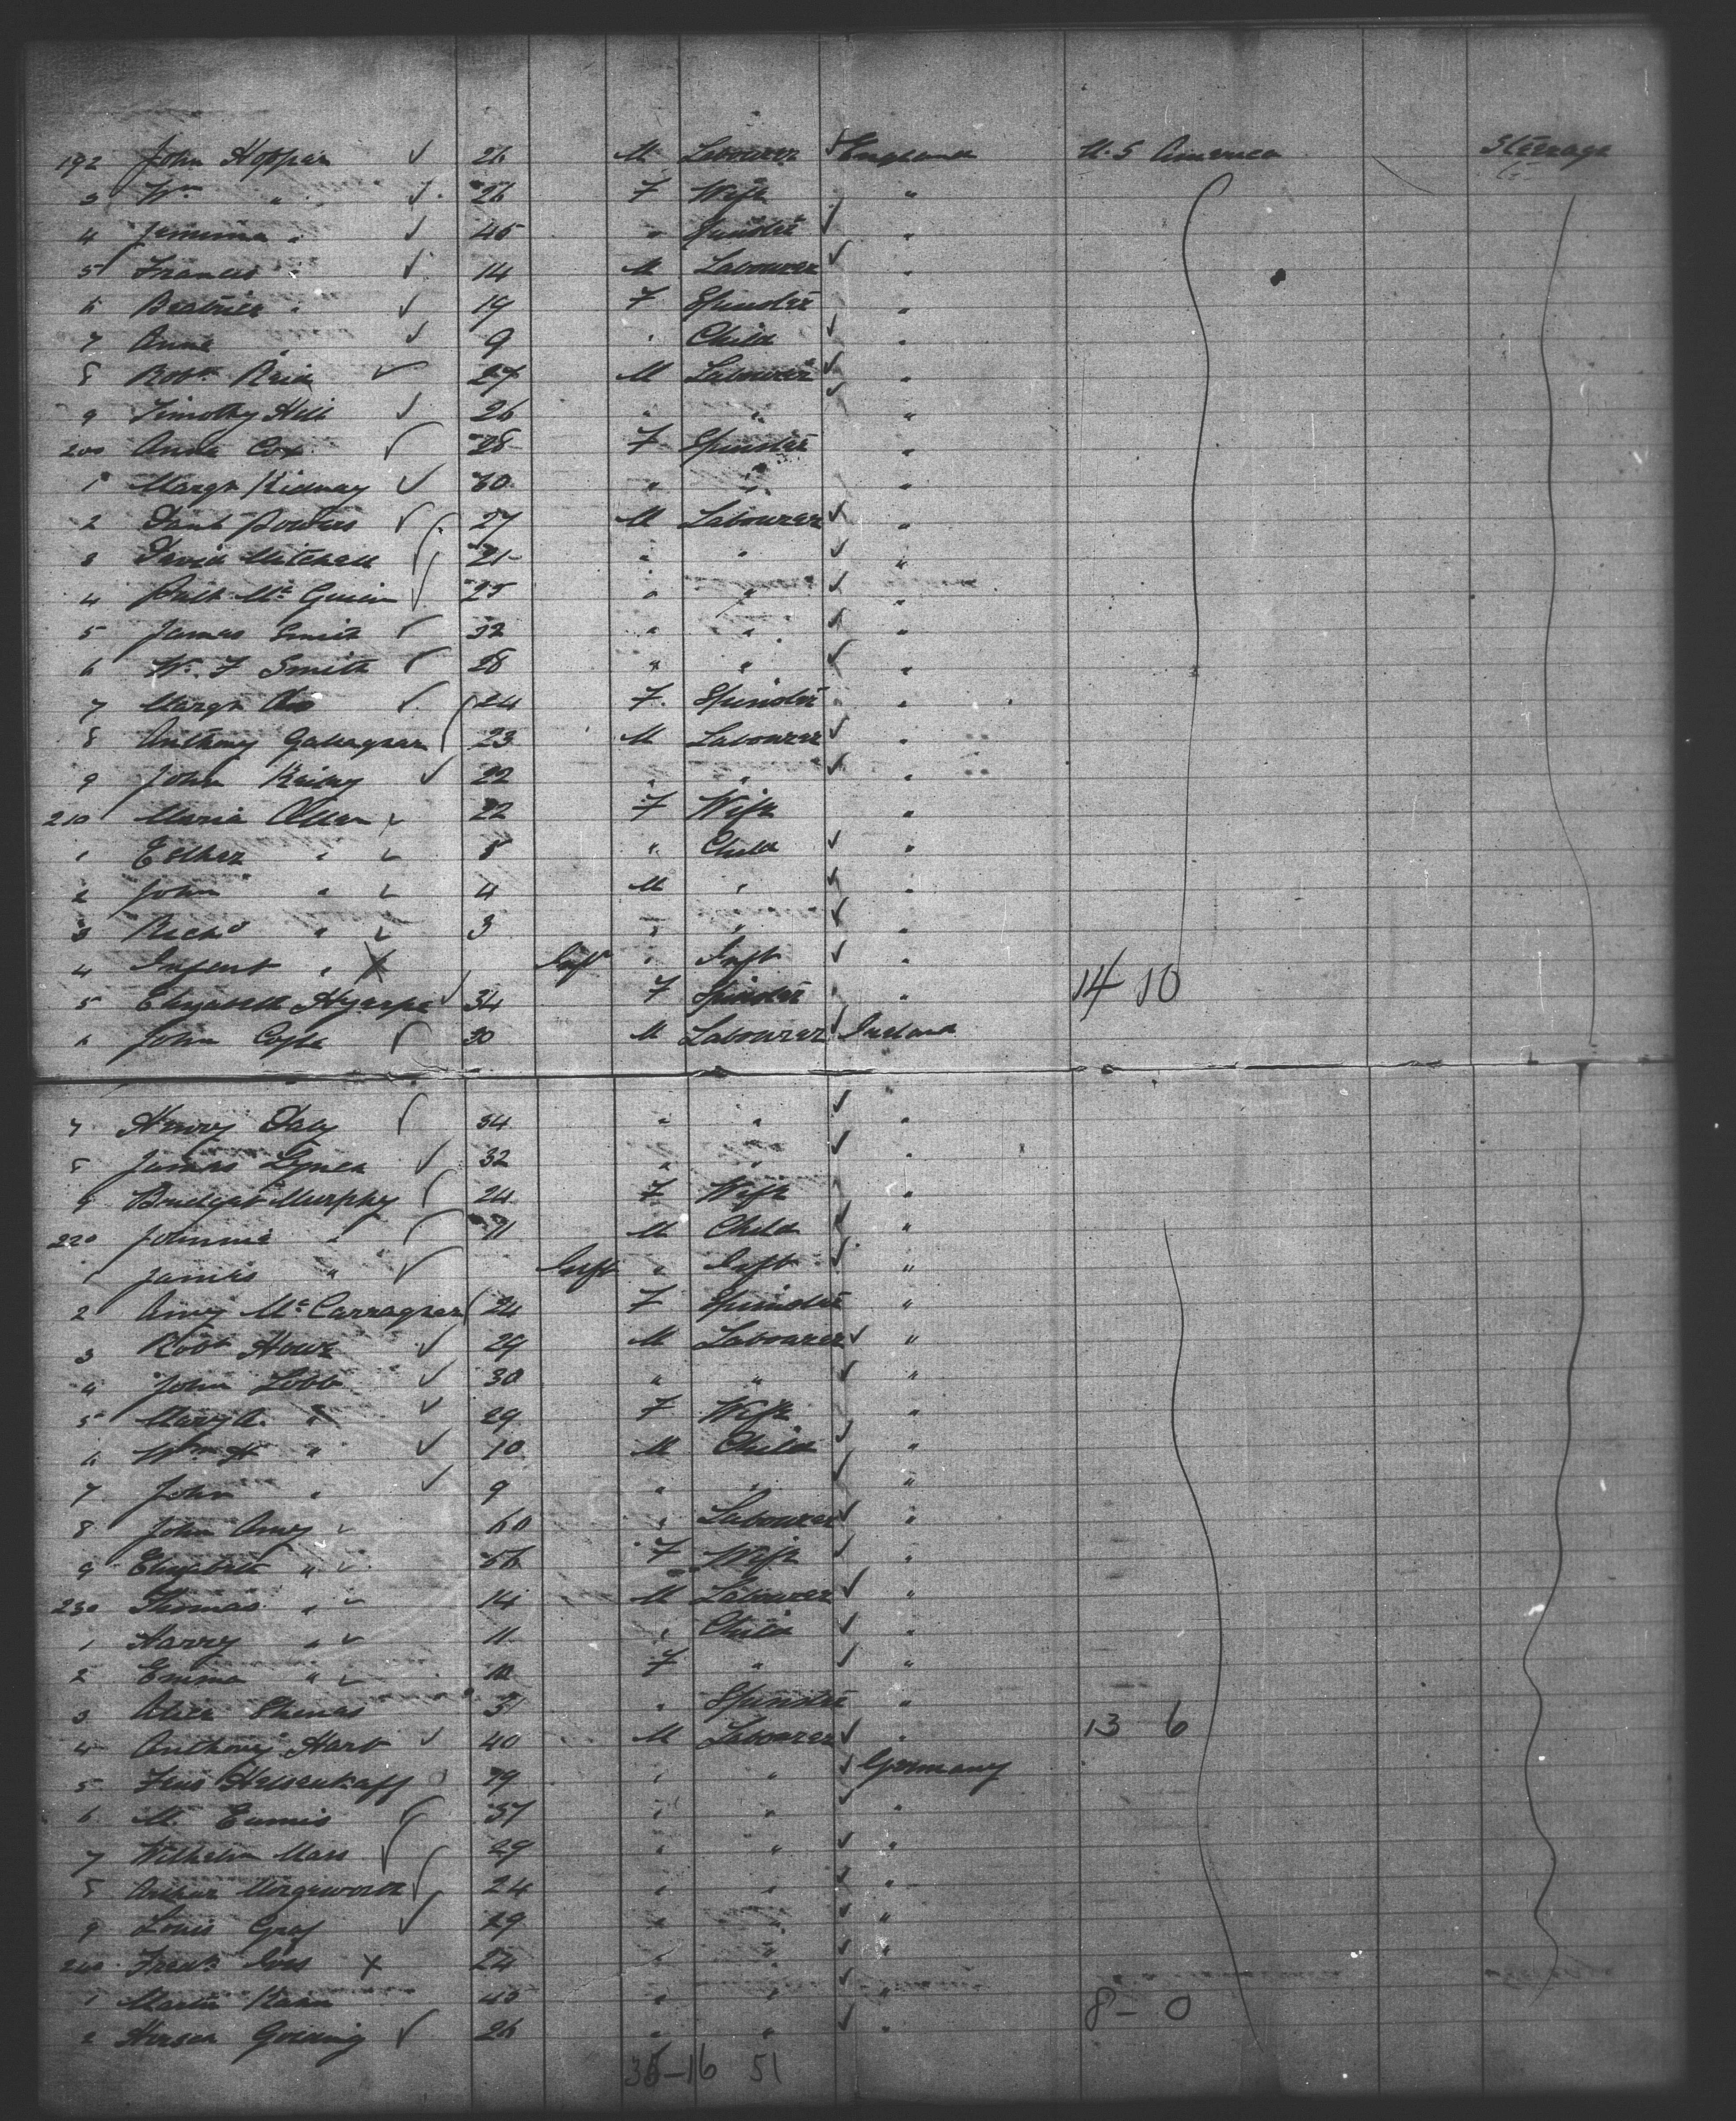 192 John Hopper ✓ 26 M Labourer ✓ England U.S America Steerage
3 Wm " ✓ 26 F Wife "
4 Jemima " ✓ 45 " Spinster ✓ "
5 Frances " ✓ 14 M Labourer ✓ "
6 Beatrice " ✓ 19 F Spinster "
7 Anne " ✓ 9 " Child ✓ "
8 Robt Reid ✓ 27 M Labourer ✓ "
9 Timothy Hill ✓ 26 " " ✓ "
200 Annie Cox ✓ 28 F Spinster "
1 Margt Kidney ✓ 30 " " "
2 Powers ✓ 27 M Labourer ✓ "
3 David Mitchell ✓ 21 " " ✓ "
4 Patk Mc ✓ 25 " " ✓ "
5 James Smith ✓ 32 " " ✓ "
6 W. F Smith ✓ 28 " " ✓ "
7 Margt ✓ 24 F. Spinster "
8 Anthony Gallagher ✓ 23 M Labourer ✓ "
9 John ✓ 22 " " ✓ "
210 Maria Allen ✓ 22 F Wife "
1 Esther " ✓ 5 " Child ✓ "
2 John " ✓ 4 M " ✓ "
3 Richd " ✓ 3 " " ✓ "
4 Infant " X Inft " Inft ✓ "
5 Elizabeth ✓ 34 F Spinster " 14 10
6 John Coyle ✓ 30 M Labourer ✓ Ireland
7 Henry Daly ✓ 34 " " ✓ "
8 James Lynch ✓ 32 " " ✓ "
9 Bridget Murphy ✓ 24 F Wife "
220 Johnnie " ✓ 11 M Child ✓ "
1 James " ✓ Inft " Inft ✓ "
2 Amy Mc ✓ 24 F Spinster "
3 Robt Howe ✓ 29 M Labourer ✓ "
4 John Lobb ✓ 30 " " ✓ "
5 Mary A. " ✓ 29 F Wife "
6 Wm H " ✓ 10 M Child ✓ "
7 John " ✓ 9 " " ✓ "
8 John Amy ✓ 60 " Labourer ✓ "
9 Elizabeth " ✓ 56 F Wife ✓ "
230 Thomas " ✓ 14 M Labourer ✓ "
1 Harry " ✓ 11 " Child ✓ "
2 Emma " ✓ F " ✓ "
3 Alice " Spinster "
4 Anthony Hart ✓ 40 M Labourer ✓ " 13 6
5 " " ✓ Germany
6 M. ✓ 37 " " ✓ "
7 Wilhelm ✓ 29 " " ✓ "
8 Arthur ✓ 24 " " ✓ "
9 Louis Graf ✓ 29 " " ✓ "
240 Fredk X 24 " " ✓ "
1 Martin 40 " " ✓ "
2 ✓ 26 " " ✓ " 8 - 0
35-16 51